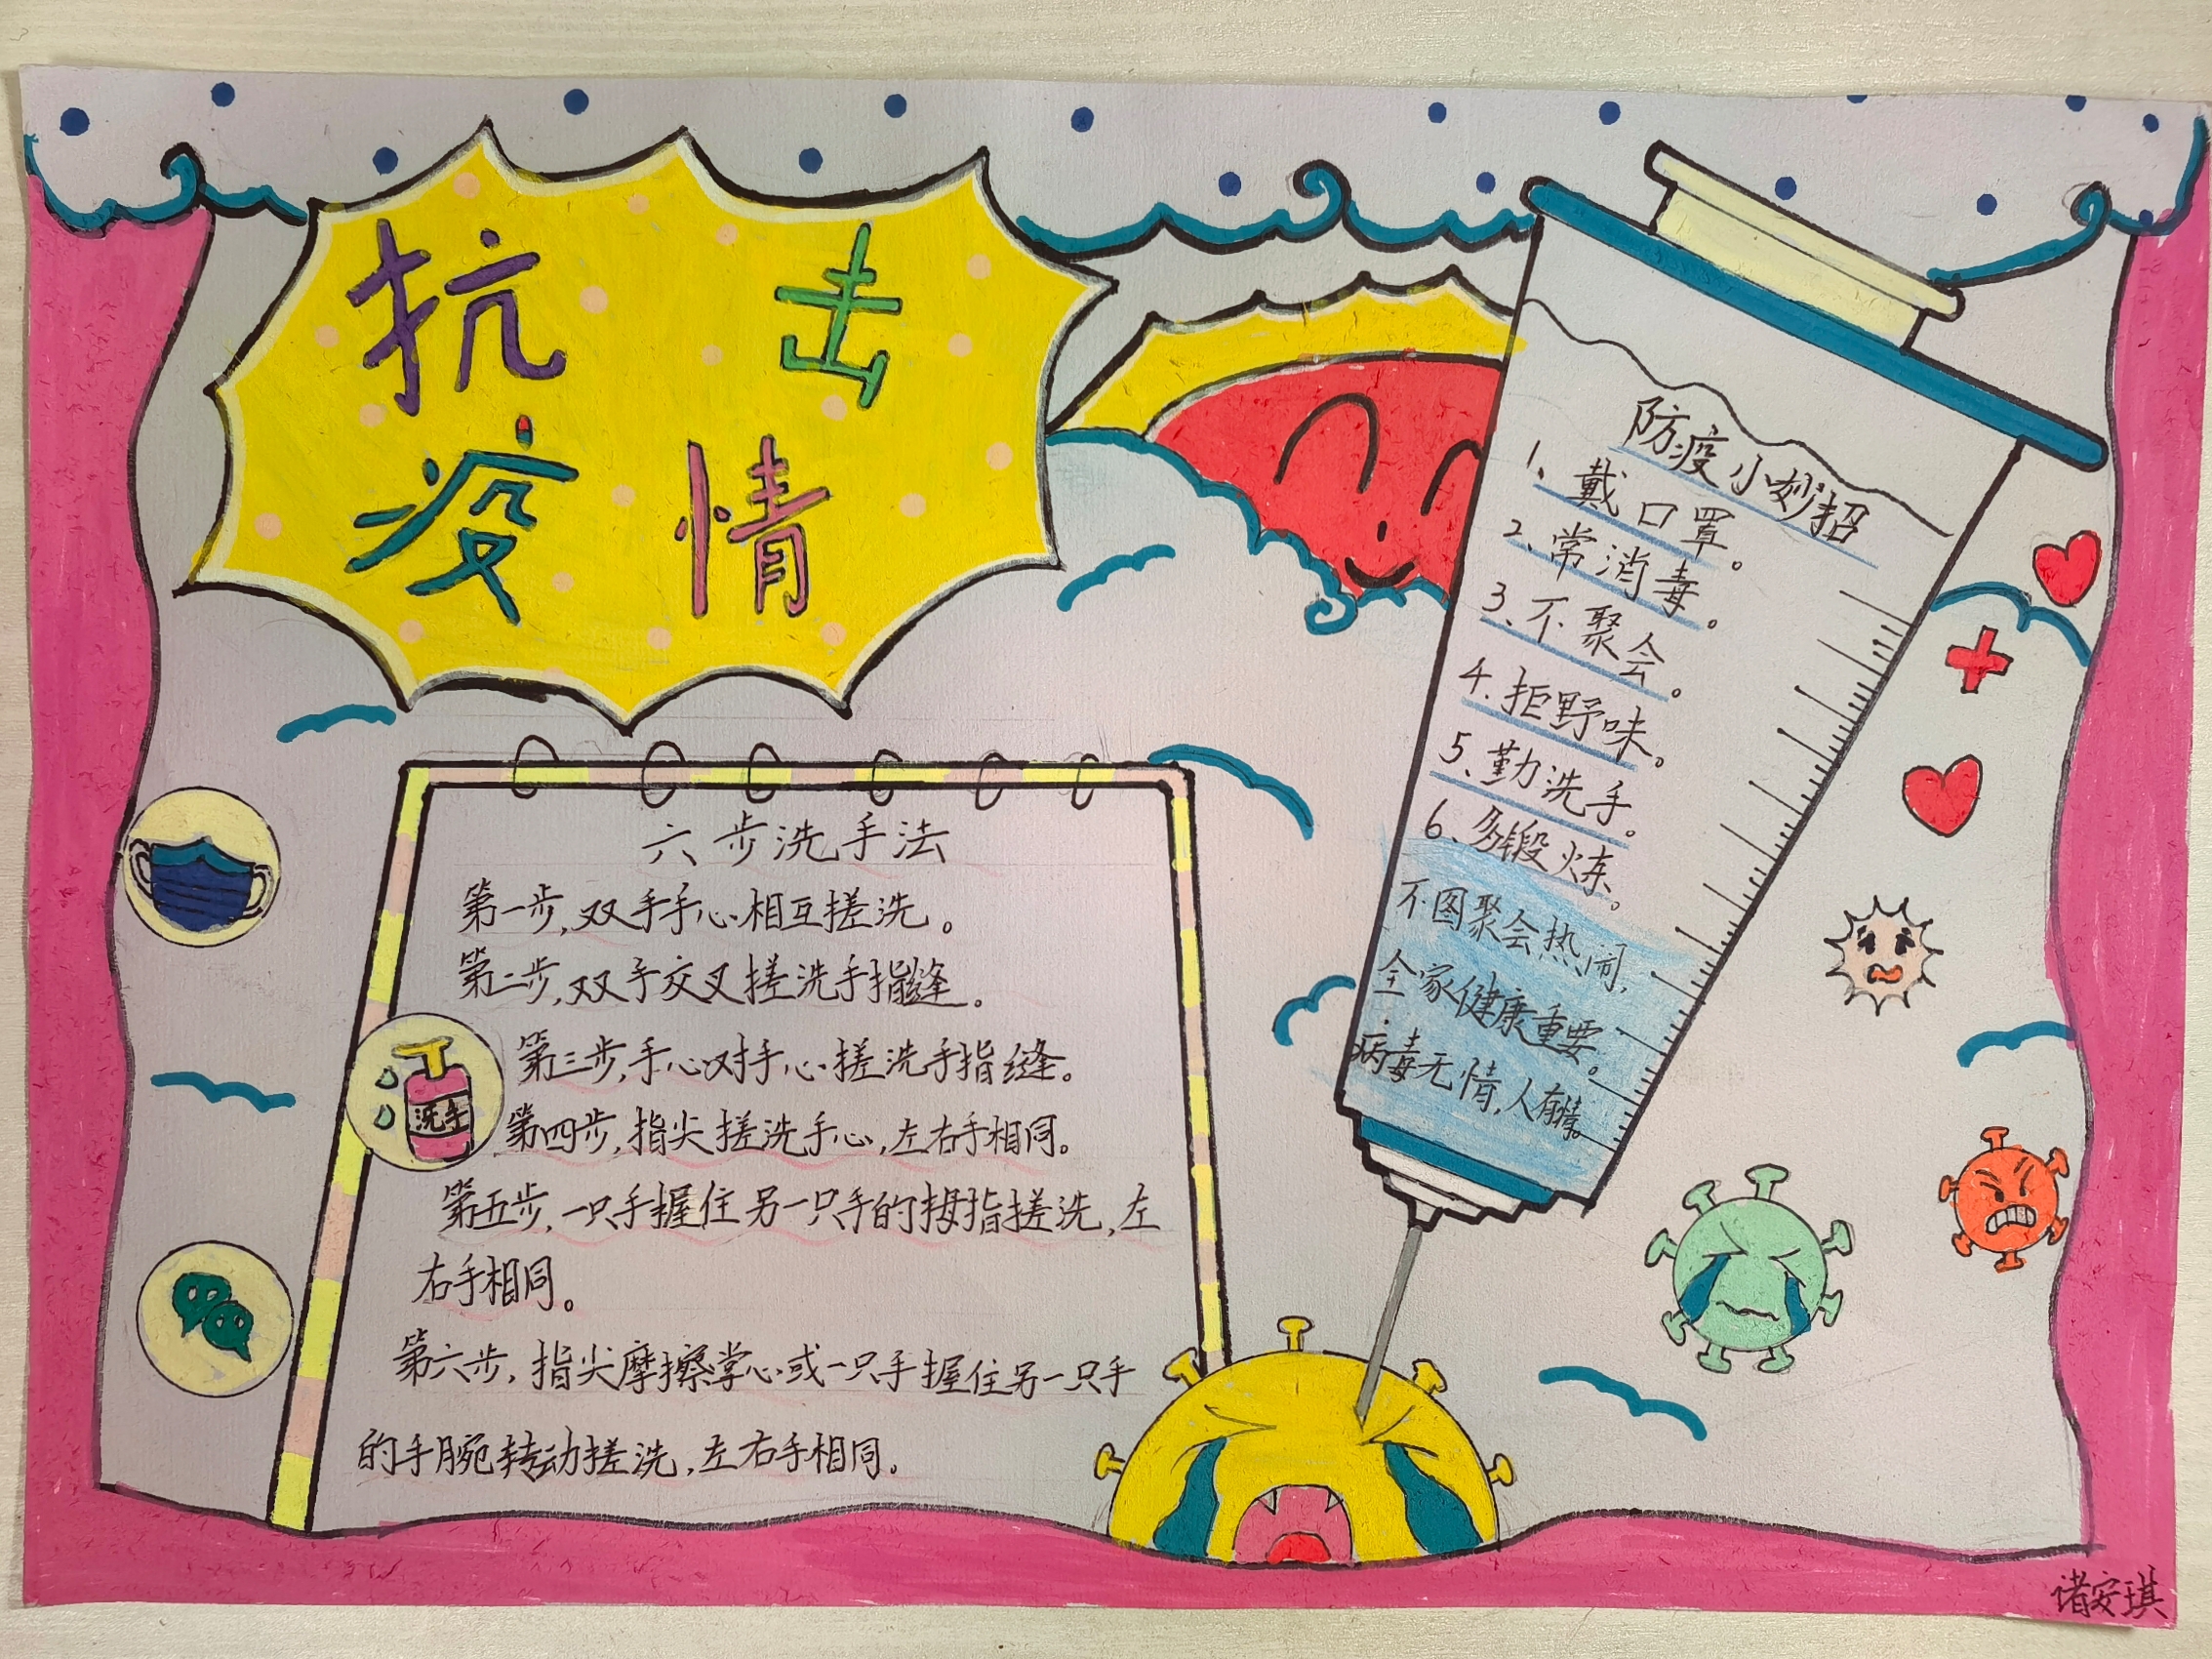 抗击
疫情
六步洗手法
第一步,双手手心相互搓洗。
第二步,双手交叉搓洗手指缝。
第三步,手心对手心搓洗手指缝。
第四步,指尖搓洗手心,左右手相同。
第五步,一只手握住另一只手的拇指搓洗,左
右手相同。
第六步,指尖摩擦掌心或一只手握住另一只手
的手腕转动搓洗,左右手相同。
洗手
防疫小妙招
1、戴口罩。
2、常消毒。
3、不聚会。
4.拒野味。
5、勤洗手。
6、多锻炼。
不图聚会热闹,
全家健康重要。
病毒无情,人有情。
诸安琪